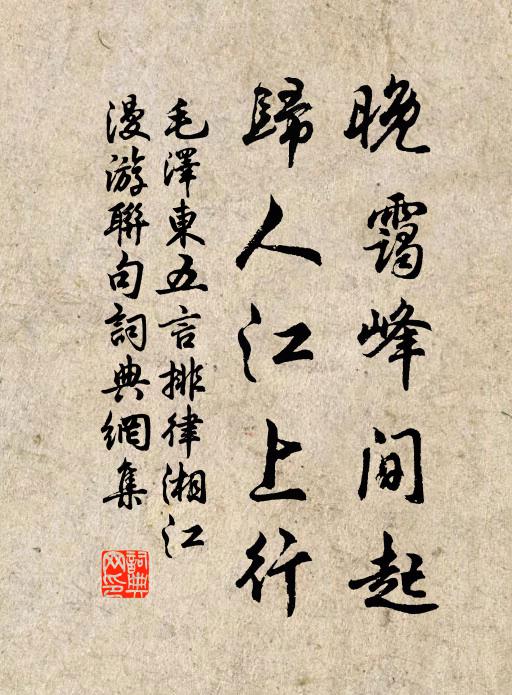 晚靄峰間起
歸人江上行
毛澤東五言排律湘江
漫游聯句詞典網集
詞典
网印